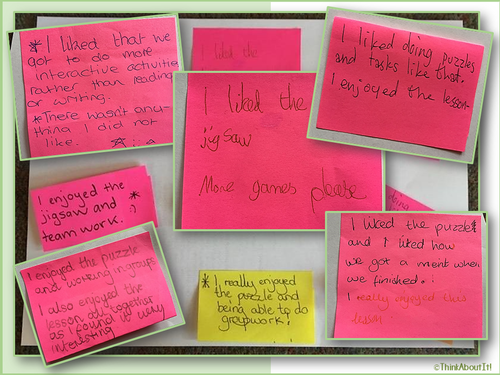 * I liked that we
got to do more
interactive activities
rather than reading
or writing.
* There wasn't any-
thing I did not
like.
I liked the
I liked doing puzzles
and tasks like that.
I enjoyed the lesson
I liked the
jigsaw
More games please
I enjoyed the
jigsaw and
team work. :)
I enjoyed the puzzle
and working in groups
I also enjoyed the
lesson all together
as I found it very
interesting
* I really enjoyed
the puzzle and
being able to do
groupwork!
I liked the puzzle
and I liked how
we got a mint when
we finished. :
I really enjoyed this
lesson
©ThinkAboutIt!